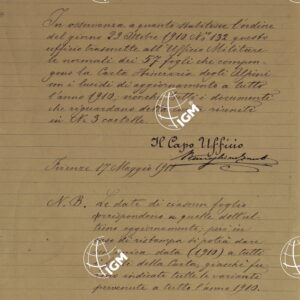 In osservanza a quanto stabilisce l'ordine
del giorno 22 Ottobre 1910 N.° 132 questo
ufficio trasmette all'Ufficio Militare
le normali dei 57 fogli che compon-
gono la Carta Itineraria degli Alpini
con i lucidi di aggiornamento a tutto
l'anno 1910, nonchè tutti i documenti
che riguardano detta riuniti
in N. 3 cartelle.
IGM
Il Capo Ufficio
Firenze 17 Maggio 1911
N.B. Le date di ciascun foglio
corrispondono a quelle dell'ul-
timo aggiornamento; però in
caso di ristampa si potrà dare
unica data (1910) a tutti
della Carta, giacchè fu-
rono indicate tutte le varianti
pervenute a tutto l'anno 1910.
IGM
IGM